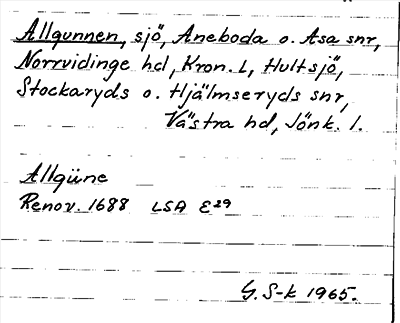 Allgunnen, sjö, Aneboda o. Asa snr,
Norrvidinge hd, Kron. l, Hultsjö,
Stockaryds o. Hjälmseryds snr,
Västra hd, Jönk. l.
Allgüne
Renov. 1688 LSA E29
G. S-k 1965.